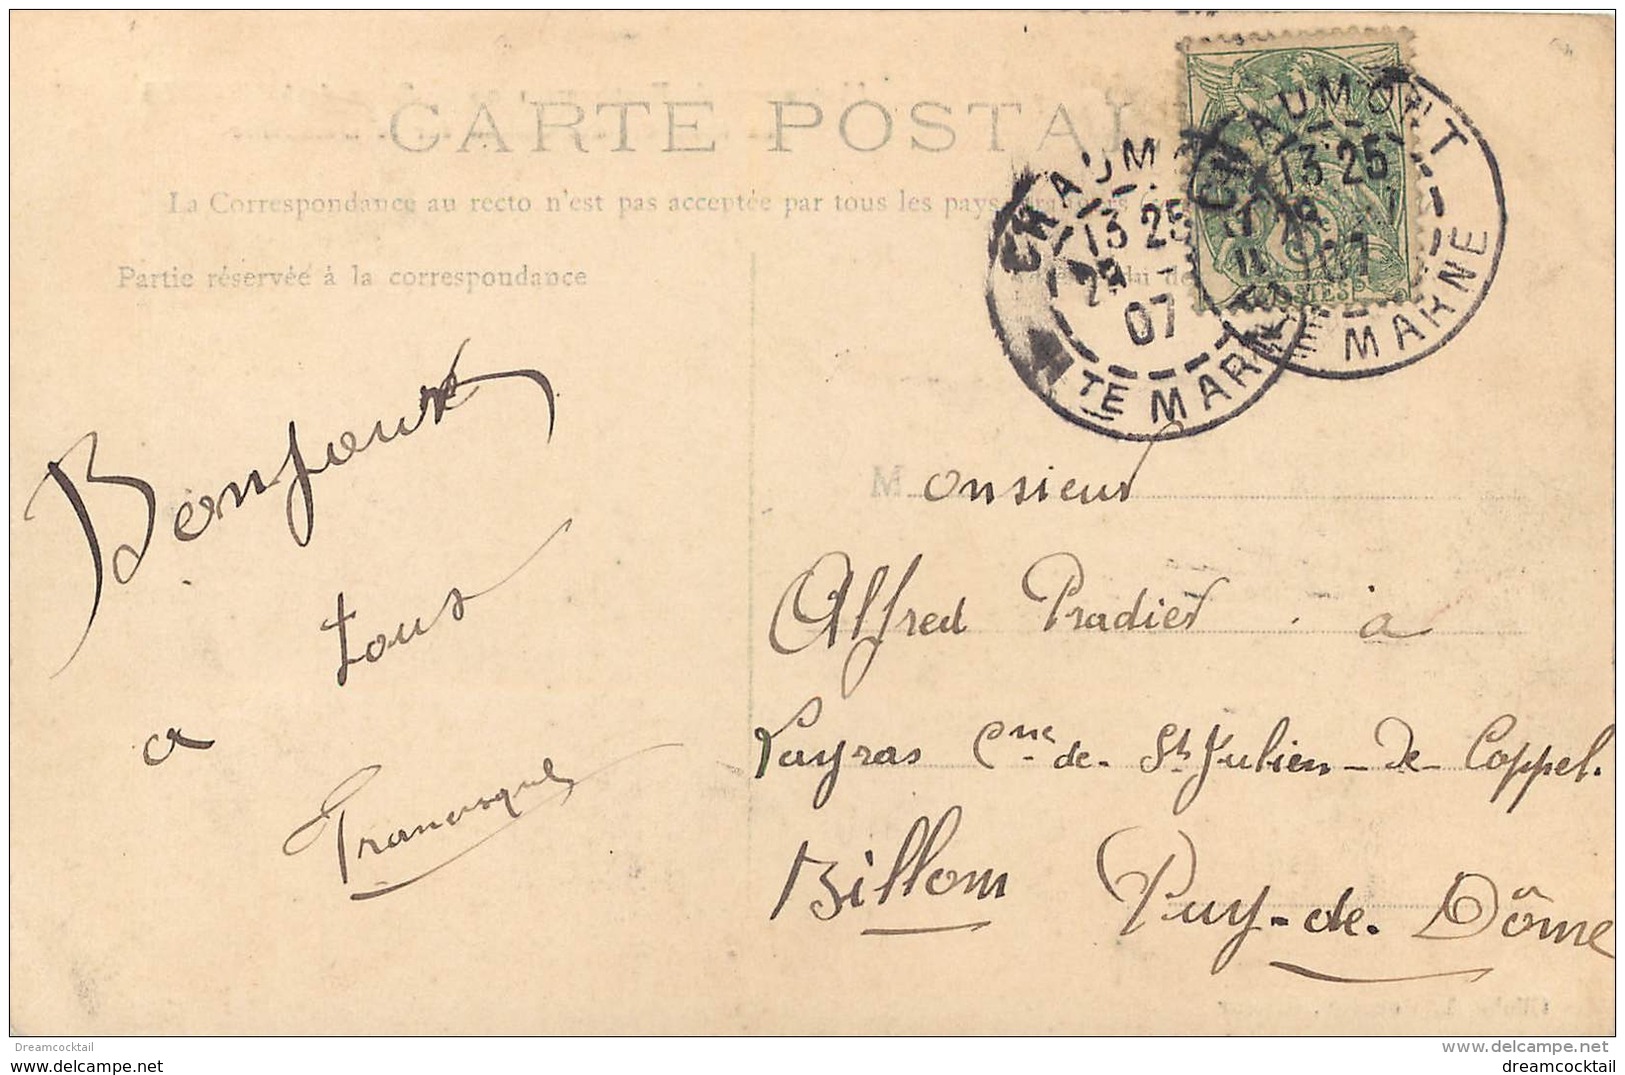 CARTE POSTAL
La Correspondance au recto n'est pas acceptée par tous les pays
Partie réservée à la correspondance
CHAUMONT
13 25
07
MARNE
CHAUM
13 25
07
TE MARNE
Bonjour
a
tous
Monsieur
Alfred Pradier à
Cne de St Julien-de-Coppel.
Billom Puy-de-Dôme
Dreamcocktail
www.delcampe.net
dreamcocktail